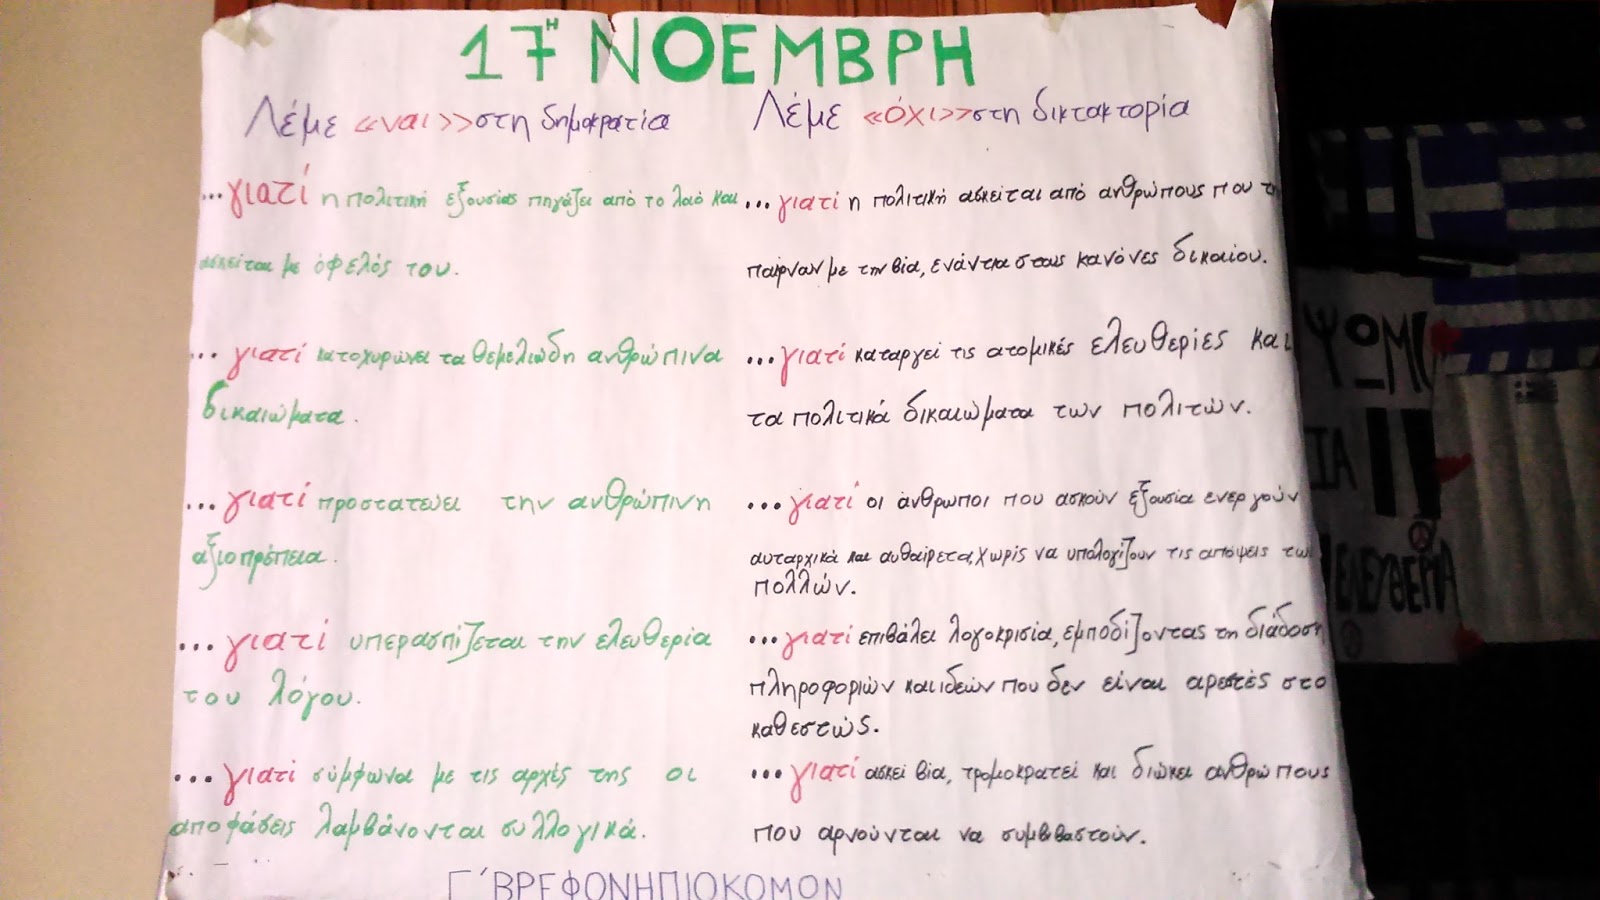 17η ΝΟΕΜΒΡΗ
Λέμε «ναι» στη δημοκρατία
...γιατί η πολιτική εξουσίας πηγάζει από το λαό και
ασκείται με όφελός του.
... γιατί κατοχυρώνει τα θεμελιώδη ανθρώπινα
δικαιώματα.
...γιατί προστατεύει την ανθρώπινη
αξιοπρέπεια.
...γιατί υπερασπίζεται την ελευθερία
του λόγου.
...γιατί σύμφωνα με τις αρχές της οι
αποφάσεις λαμβάνονται συλλογικά.
Λέμε «όχι» στη δικτακτορία
...γιατί η πολιτική ασκείται από ανθρώπους που τη
παίρναν με την βία, ενάντια στους κανόνες δικαίου.
...γιατί καταργεί τις ατομικές ελευθερίες και
τα πολιτικά δικαιώματα των πολιτών.
...γιατί οι άνθρωποι που ασκούν εξουσία ενεργούν
αυταρχικά και αυθαίρετα, χωρίς να υπολογίζουν τις απόψεις των
πολλών.
...γιατί επιβάλει λογοκρισία, εμποδίζοντας τη διάδοση
πληροφοριών και ιδεών που δεν είναι αρεστές στο
καθεστώς.
...γιατί ασκεί βία, τρομοκρατεί και διώκει ανθρώπους
που αρνούνται να συμβιβαστούν.
Γ΄ΒΡΕΦΟΝΗΠΙΟΚΟΜΩΝ
ΕΛΕΥΘΕΡΙΑ